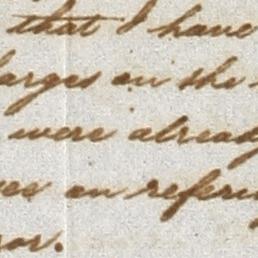 that I have
arges on the
were already
es on referi
or.